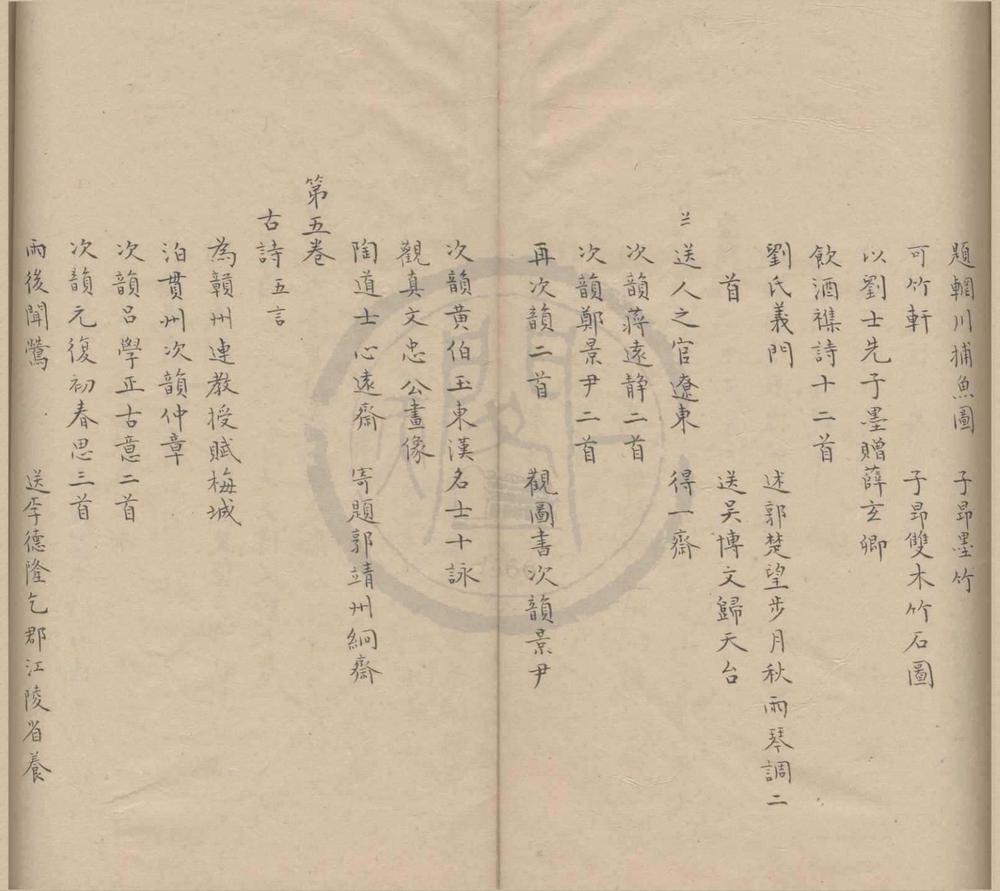 題輞川捕魚圖　子昂墨竹
可竹軒　子昂雙木竹石圖
以劉士先子墨贈薛玄卿
飲酒襍詩十二首
劉氏義門　述郭楚望步月秋雨琴調二
首　送吳博文歸天台
送人之官遼東　得一齋
次韻蔣遠靜二首
次韻鄭景尹二首
再次韻二首　觀圖書次韻景尹
次韻黄伯玉東漢名士十詠
觀真文忠公畫像
陶道士心遠齋　寄題郭靖州絅齋
第五卷
古詩五言
為贛州連教授賦梅城
泊貫州次韻仲章
次韻呂學正古意二首
次韻元復初春思三首
雨後聞鶯　送李德隆乞郡江陵省養